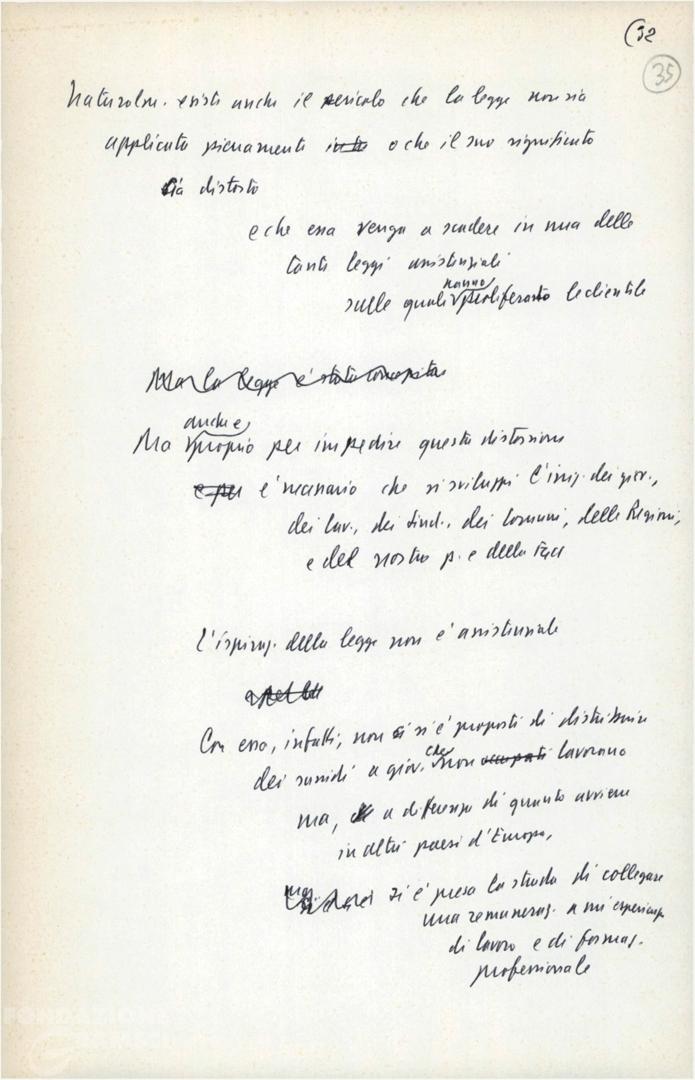 (32
35
Naturalm. esiste anche il pericolo che la legge non sia
applicata pienamente o che il suo significato
sia distorto
e che essa venga a scadere in una delle
tante leggi assistenziali
sulle quali hanno proliferato le clientele
Ma la legge è stata concepita
Ma anche e proprio per impedire questa distorsione
è necessario che si sviluppi l'iniz. dei giov.,
dei lav., dei sind., dei Comuni, delle Regioni,
e del nostro p. e della FGCI
L'ispiraz. della legge non è assistenziale
Con essa, infatti, non si è proposti di distribuire
dei sussidi a giov. che non occupati lavorano
ma, a differenza di quanto avviene
in altri paesi d'Europa,
si è presa la strada di collegare
una remuneraz. a un'esperienza
di lavoro e di formaz.
professionale